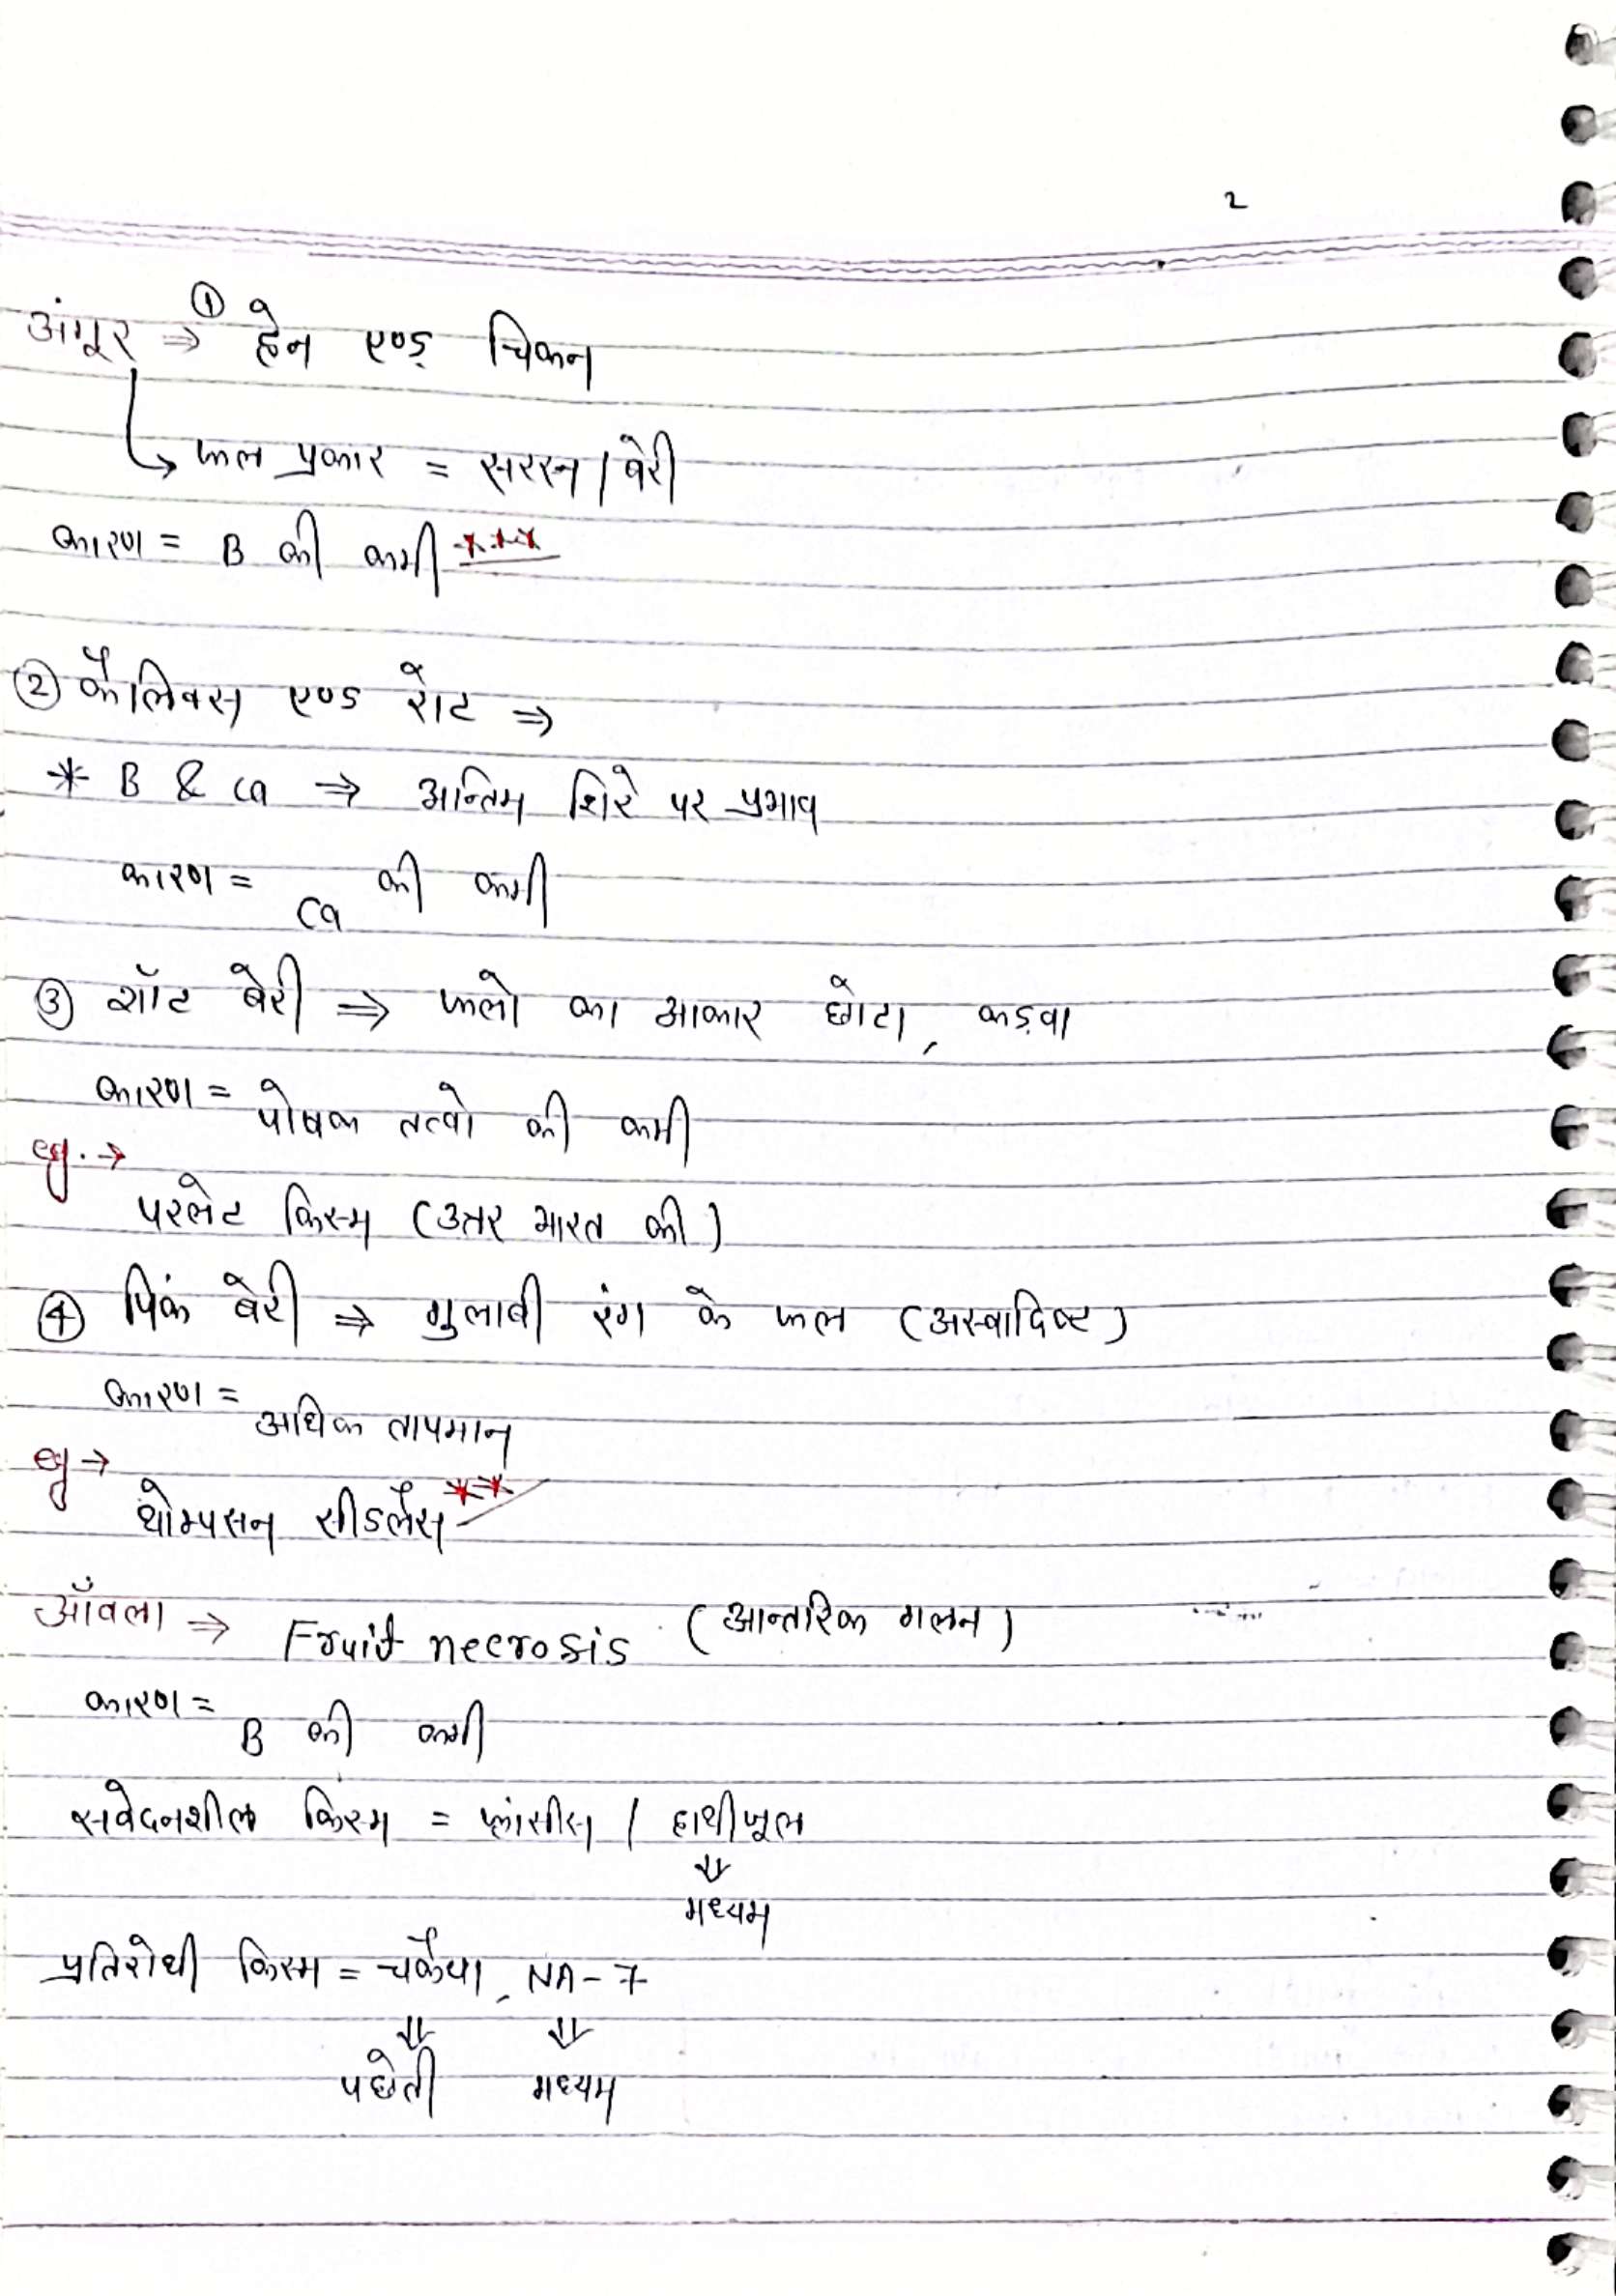 2
अंगूर ⇒ ① हेन एण्ड चिकन
↳ फल प्रकार = सरस / बेरी
कारण = B की कमी ***
② कैलिक्स एण्ड रोट ⇒
* B & Ca ⇒ अन्तिम शिरे पर प्रभाव
कारण = Ca की कमी
③ शॉट बेरी ⇒ फलो का आकार छोटा, कड़वा
कारण = पोषक तत्वो की कमी
eg. →
परलेट किस्म (उत्तर भारत की)
④ पिंक बेरी ⇒ गुलाबी रंग के फल (अस्वादिष्ट)
कारण = अधिक तापमान
eg →
थोम्पसन सीडलैस **
आँवला ⇒ Fruit necrosis (आन्तरिक गलन)
कारण = B की कमी
सवेदनशील किस्म = फ्रांसीस / हाथीझूल
⇓
मध्यम
प्रतिरोधी किस्म = चकैया, NA-7
⇓ ⇓
पछेती मध्यम